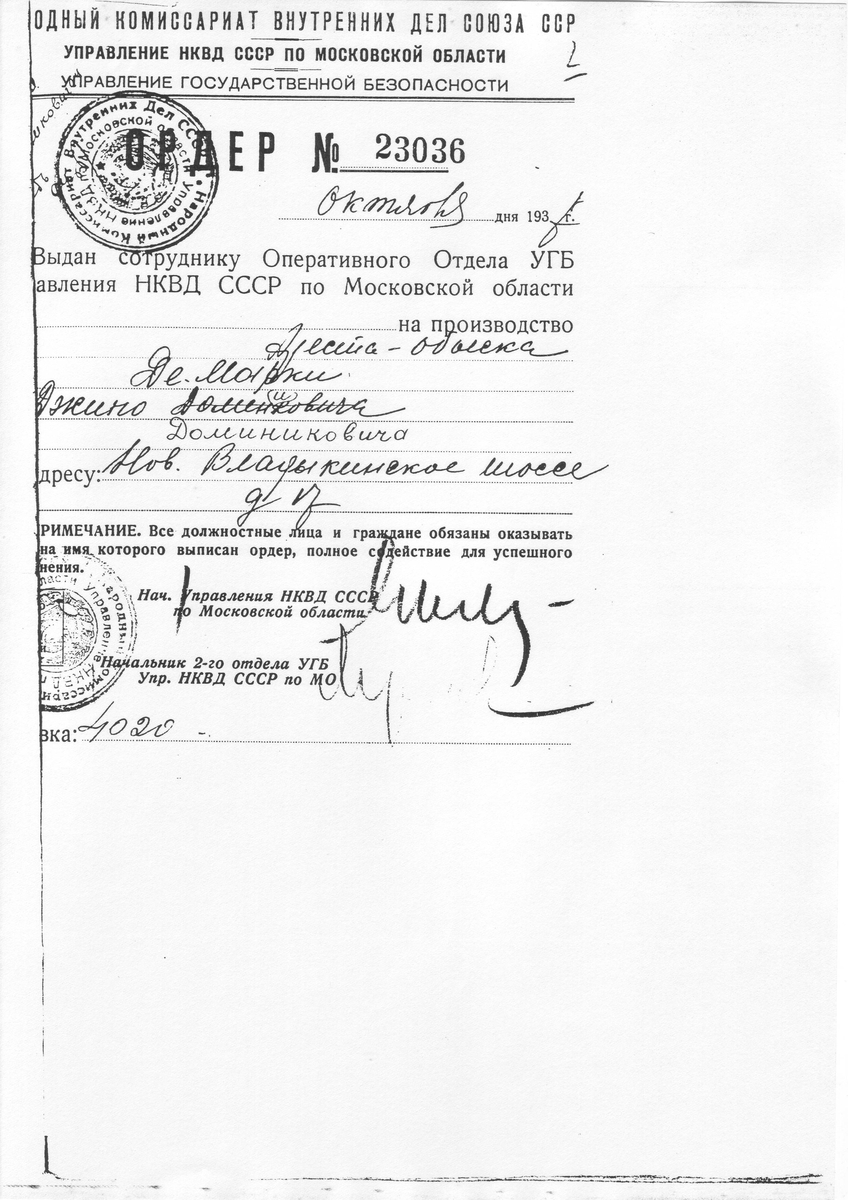 ОДНЫЙ КОМИССАРИАТ ВНУТРЕННИХ ДЕЛ СОЮЗА ССР
УПРАВЛЕНИЕ НКВД СССР ПО МОСКОВСКОЙ ОБЛАСТИ
УПРАВЛЕНИЕ ГОСУДАРСТВЕННОЙ БЕЗОПАСНОСТИ
Народный Комиссариат Внутренних Дел СССР
Управление НКВД по Московской области
ОРДЕР № 23036
октября дня 193 г.
Выдан сотруднику Оперативного Отдела УГБ
авления НКВД СССР по Московской области
на производство
Ареста-обыска
Де-Марки
Джино Доменковича
и
Доминиковича
дресу: Нов. Владыкинское шоссе
д 17
РИМЕЧАНИЕ. Все должностные лица и граждане обязаны оказывать
на имя которого выписан ордер, полное содействие для успешного
нения.
Нач. Управления НКВД СССР
по Московской области
Начальник 2-го отдела УГБ
Упр. НКВД СССР по МО
вка: 4020 -